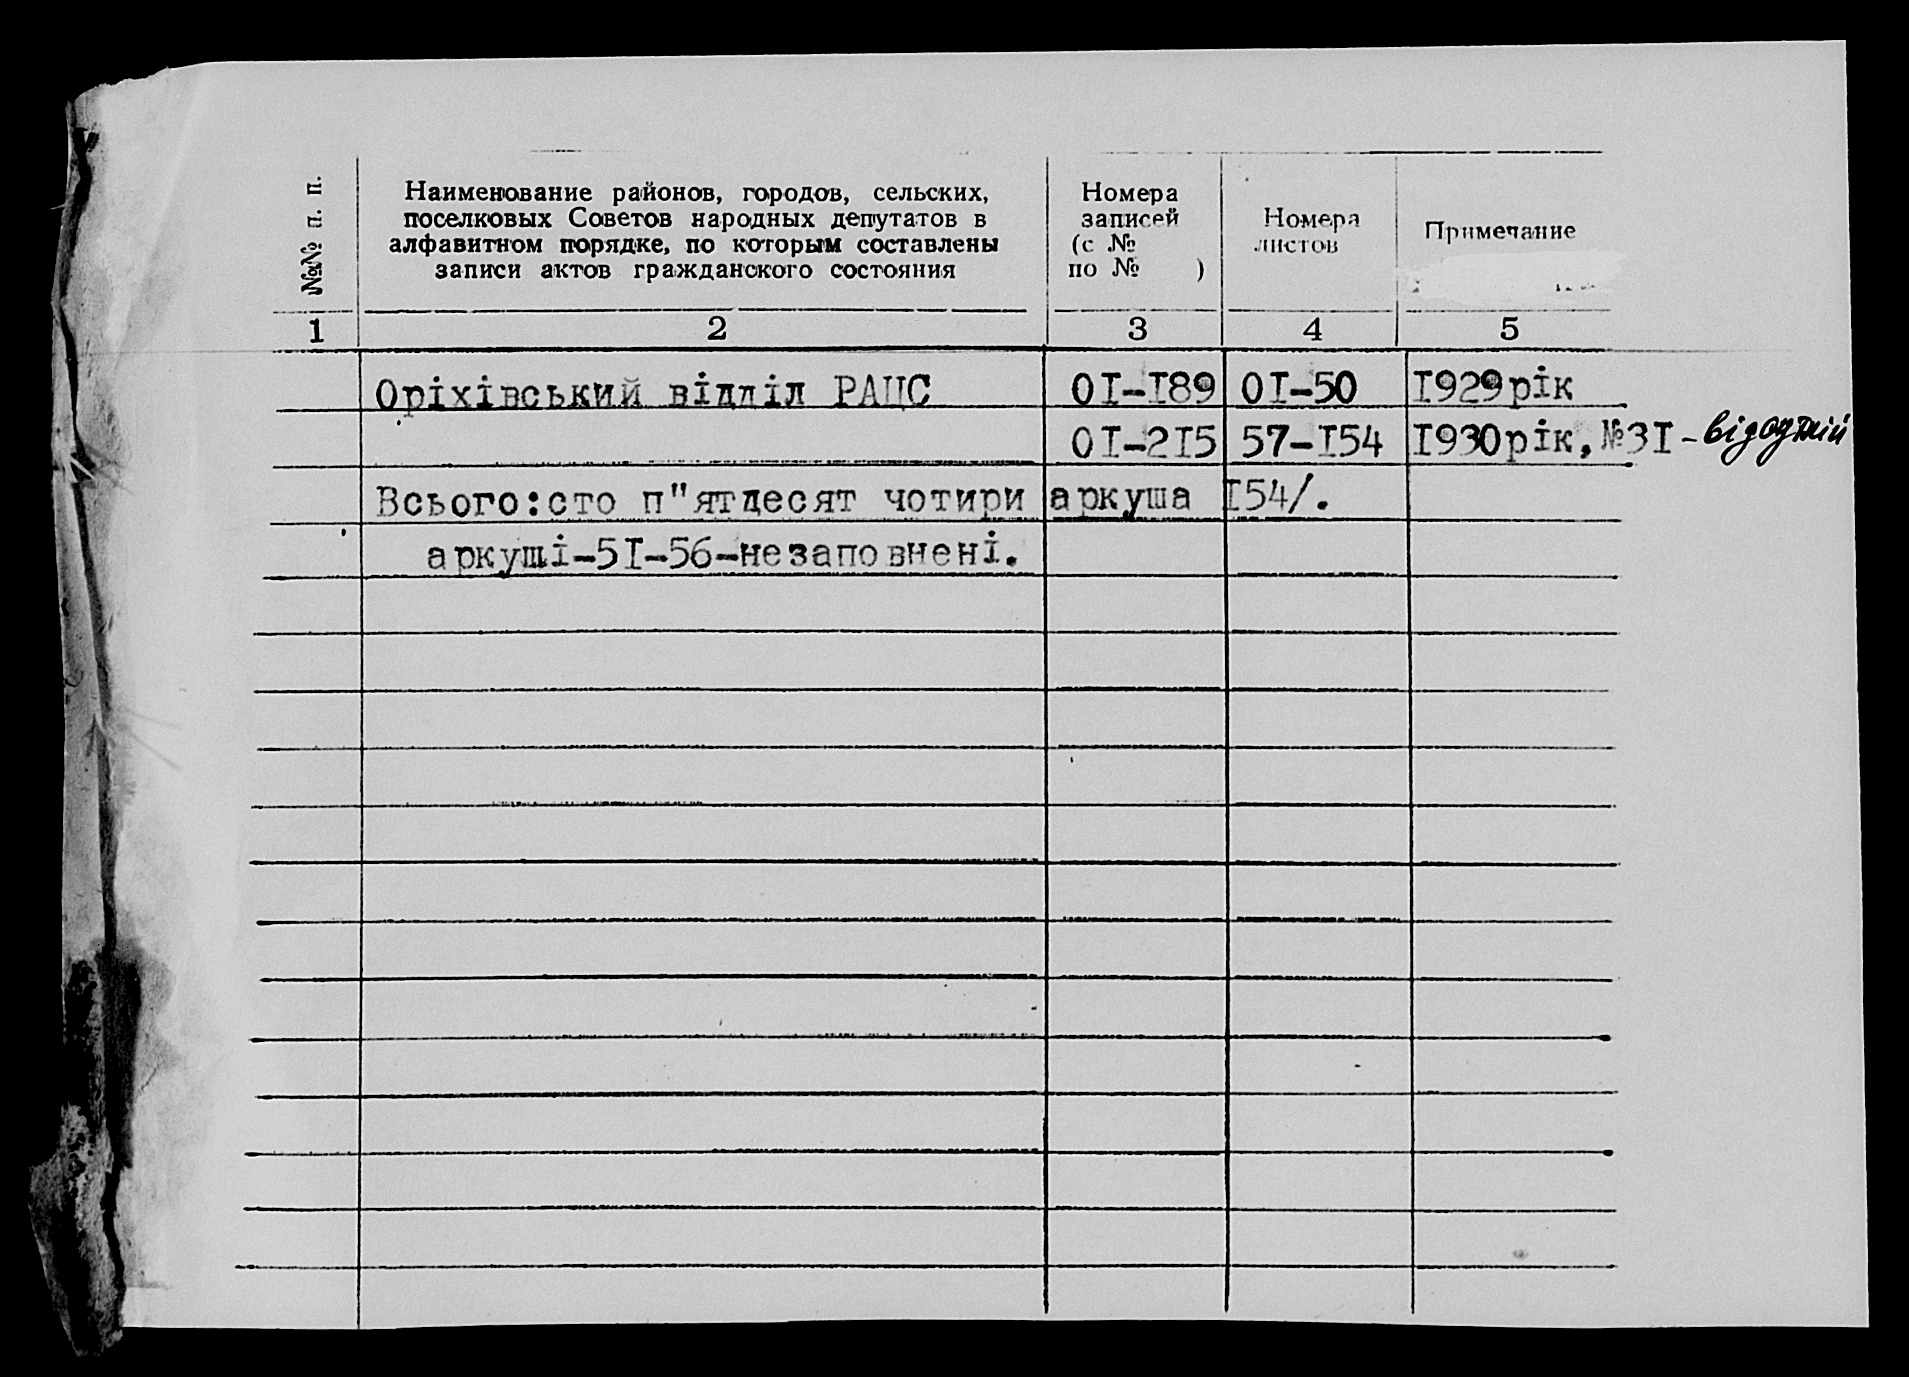 №№ п. п.
Наименование районов, городов, сельских,
поселковых Советов народных депутатов в
алфавитном порядке, по которым составлены
записи актов гражданского состояния
Номера
записей
(с №
по № )
Номера
листов
Примечание
1 2 3 4 5
Оріхівський відділ РАЦС 01-189 01-50 1929рік
01-215 57-154 1930рік,№31-відсутній
Всього:сто п"ятдесят чотири аркуша 154/.
аркуші-51-56-незаповнені.